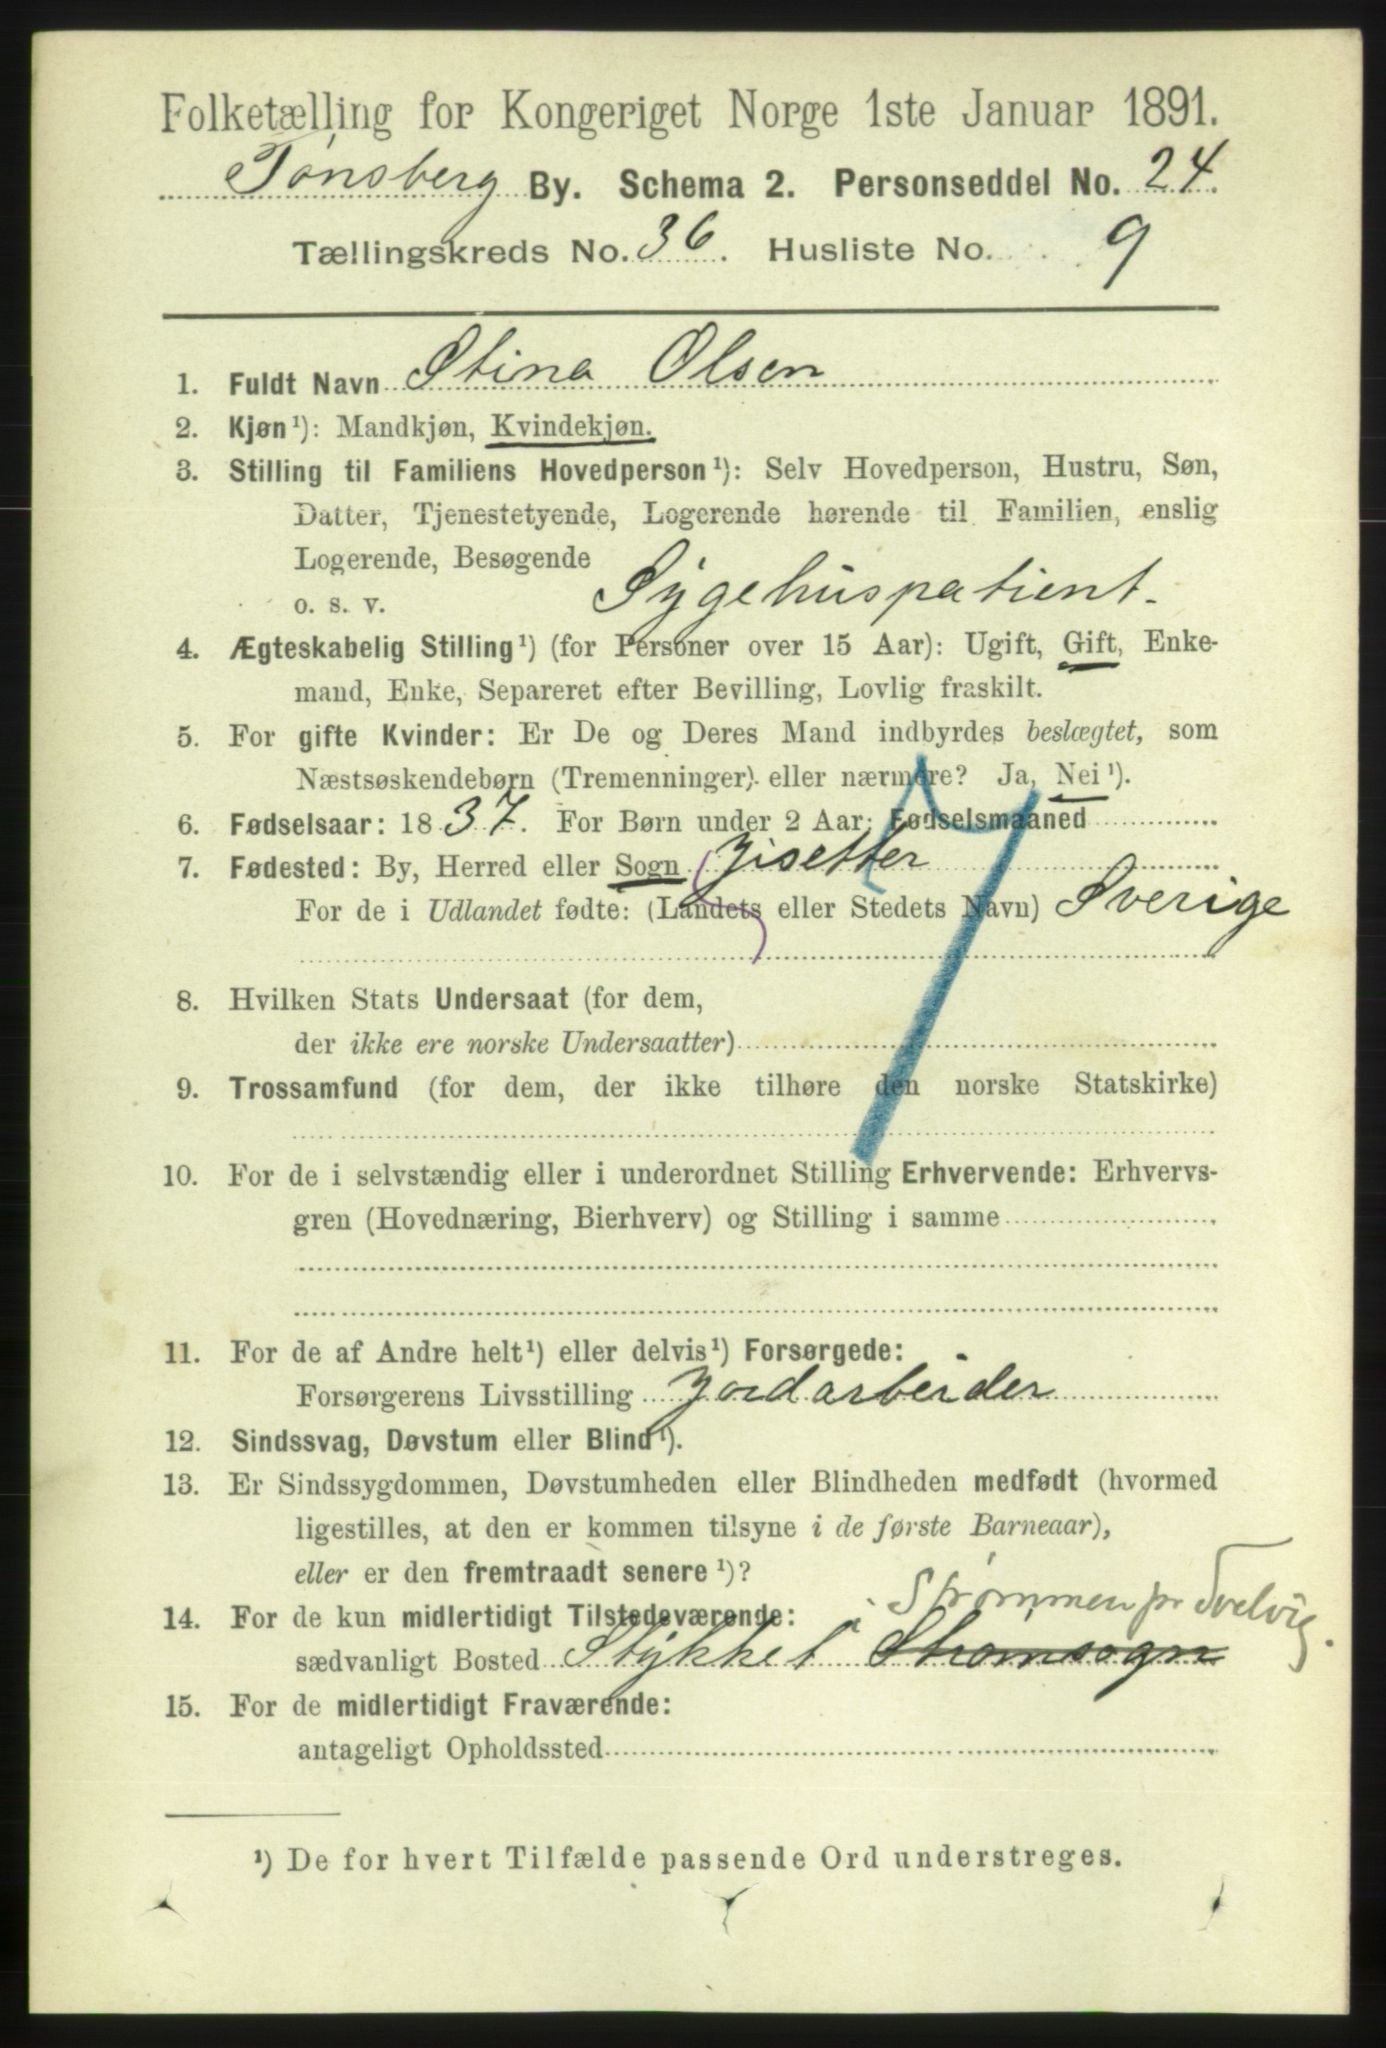 Folketælling for Kongeriget Norge 1ste Januar 1891.
Tønsberg By. Schema 2. Personseddel No. 24.
Tællingskreds No. 36. Husliste No. 9
1. Fuldt Navn Stina Olsen
2. Kjøn¹): Mandkjøn, Kvindekjøn.
3. Stilling til Familiens Hovedperson¹): Selv Hovedperson, Hustru, Søn,
Datter, Tjenestetyende, Logerende hørende til Familien, enslig
Logerende, Besøgende
o. s. v. Sygehuspatient.
4. Ægteskabelig Stilling¹) (for Personer over 15 Aar): Ugift, Gift, Enke-
mand, Enke, Separeret efter Bevilling, Lovlig fraskilt.
5. For gifte Kvinder: Er De og Deres Mand indbyrdes beslægtet, som
Næstsøskendebørn (Tremenninger) eller nærmere? Ja, Nei¹).
6. Fødselsaar: 1837. For Børn under 2 Aar: Fødselsmaaned
7. Fødested: By, Herred eller Sogn Jisetter
For de i Udlandet fødte: (Landets eller Stedets Navn) Sverige
8. Hvilken Stats Undersaat (for dem,
der ikke ere norske Undersaatter)
9. Trossamfund (for dem, der ikke tilhøre den norske Statskirke)
10. For de i selvstændig eller i underordnet Stilling Erhvervende: Erhvervs-
gren (Hovednæring, Bierhverv) og Stilling i samme
11. For de af Andre helt¹) eller delvis¹) Forsørgede:
Forsørgerens Livsstilling Jordarbeider
12. Sindssvag, Døvstum eller Blind¹).
13. Er Sindssygdommen, Døvstumheden eller Blindheden medfødt (hvormed
ligestilles, at den er kommen tilsyne i de første Barneaar),
eller er den fremtraadt senere¹)?
Strømmen pr Svelvig.
14. For de kun midlertidigt Tilstedeværende:
sædvanligt Bosted Stykket i Strømsogn
15. For de midlertidigt Fraværende:
antageligt Opholdssted
¹) De for hvert Tilfælde passende Ord understreges.